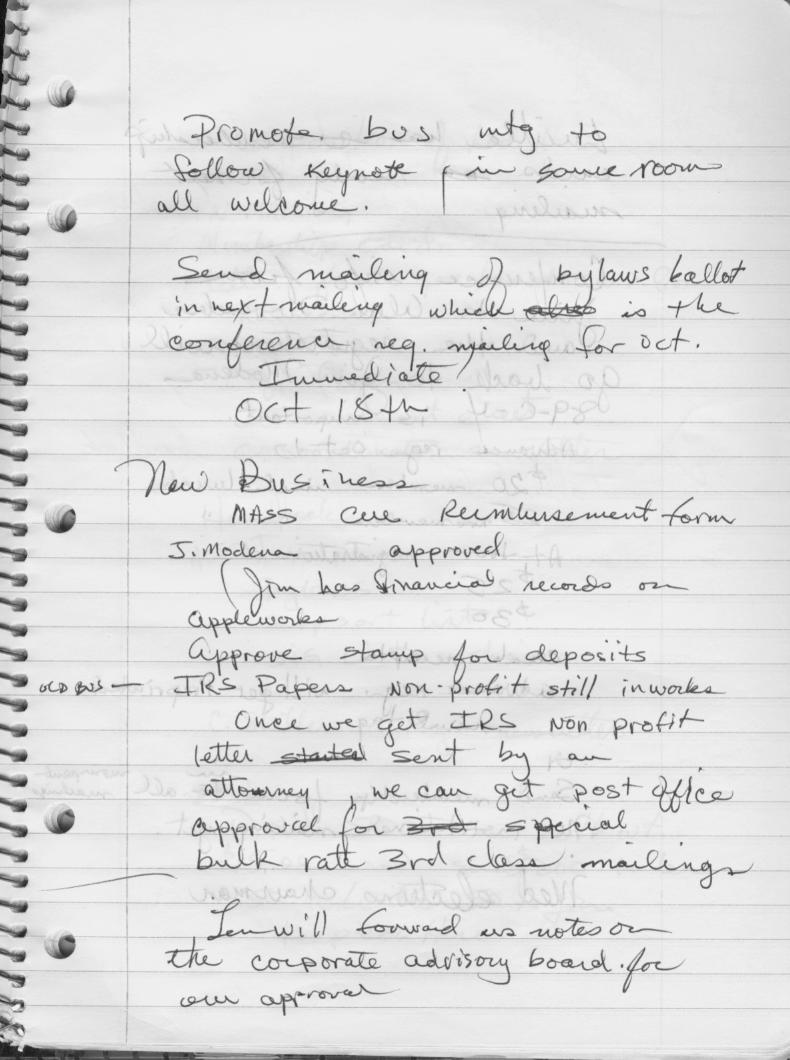 Promote bus mtg to
follow Keynote, in same room
all welcome.
Send mailing of bylaws ballot
in next mailing which also is the
conference reg. mailing for Oct.
Immediate!
Oct 18th
New Business
MASS CUE Reimbursement form
J. Modena approved
(Jim has financial records on
appleworks
Approve stamp for deposits
OLD BUS — IRS Papers Non-profit still in works
Once we get IRS Non profit
letter started sent by an
attourney, we can get post office
approval for 3rd special
bulk rate 3rd class mailings
Len will forward us notes on
the corporate advisory board for
our approval